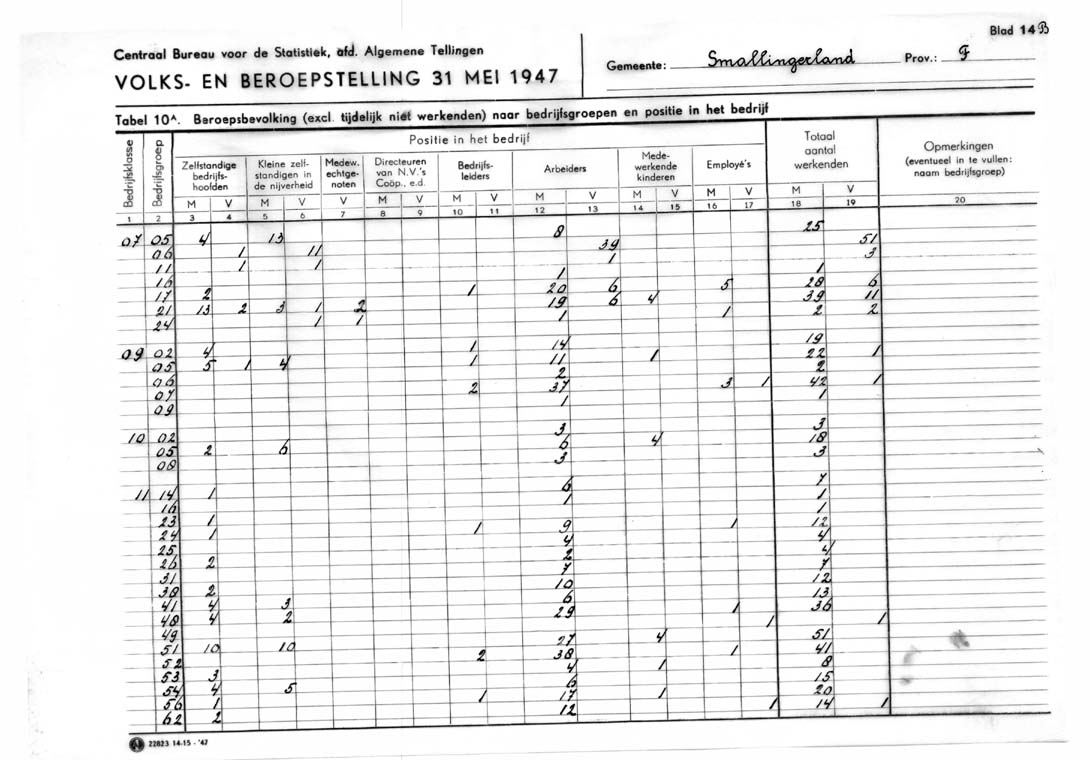 Blad 14 B
Centraal Bureau voor de Statistiek, afd. Algemene Tellingen
VOLKS- EN BEROEPSTELLING 31 MEI 1947
Gemeente: Smallingerland Prov.: F
Tabel 10A. Beroepsbevolking (excl. tijdelijk niet werkenden) naar bedrijfsgroepen en positie in het bedrijf
Bedrijfsklasse
Bedrijfsgroep
Positie in het bedrijf
Zelfstandige bedrijfs-hoofden
Kleine zelf-standigen in de nijverheid
Medew. echtge-noten
Directeuren van N.V.'s Coöp., e.d.
Bedrijfs-leiders
Arbeiders
Mede-werkende kinderen
Employé's
Totaal aantal werkenden
Opmerkingen (eventueel in te vullen: naam bedrijfsgroep)
M V M V V M V M V M V M V M V M V
1 2 3 4 5 6 7 8 9 10 11 12 13 14 15 16 17 18 19 20
07 05 4 13 8 25
06 1 11 39 51
11 1 1 1 3
16 1 1
17 2 1 20 6 5 28 6
21 13 2 3 1 2 19 6 4 39 11
24 1 1 1 1 2 2
09 02 4 1 14 19
05 5 1 4 1 11 1 22 1
06 2 2
07 2 37 3 1 42 1
09 1 1
10 02 3 3
05 2 6 6 4 18
08 3 3
11 14 1 6 7
16 1 1
23 1 1
24 1 1 9 1 12
25 4 4
26 2 2 4
31 7 7
38 2 10 12
41 4 3 6 13
48 4 2 29 1 36
49 1 1
51 10 10 27 4 51
52 2 38 1 41
53 3 4 1 8
54 4 5 6 15
56 1 1 17 1 20
62 2 12 1 14 1
22823 14-15 - '47